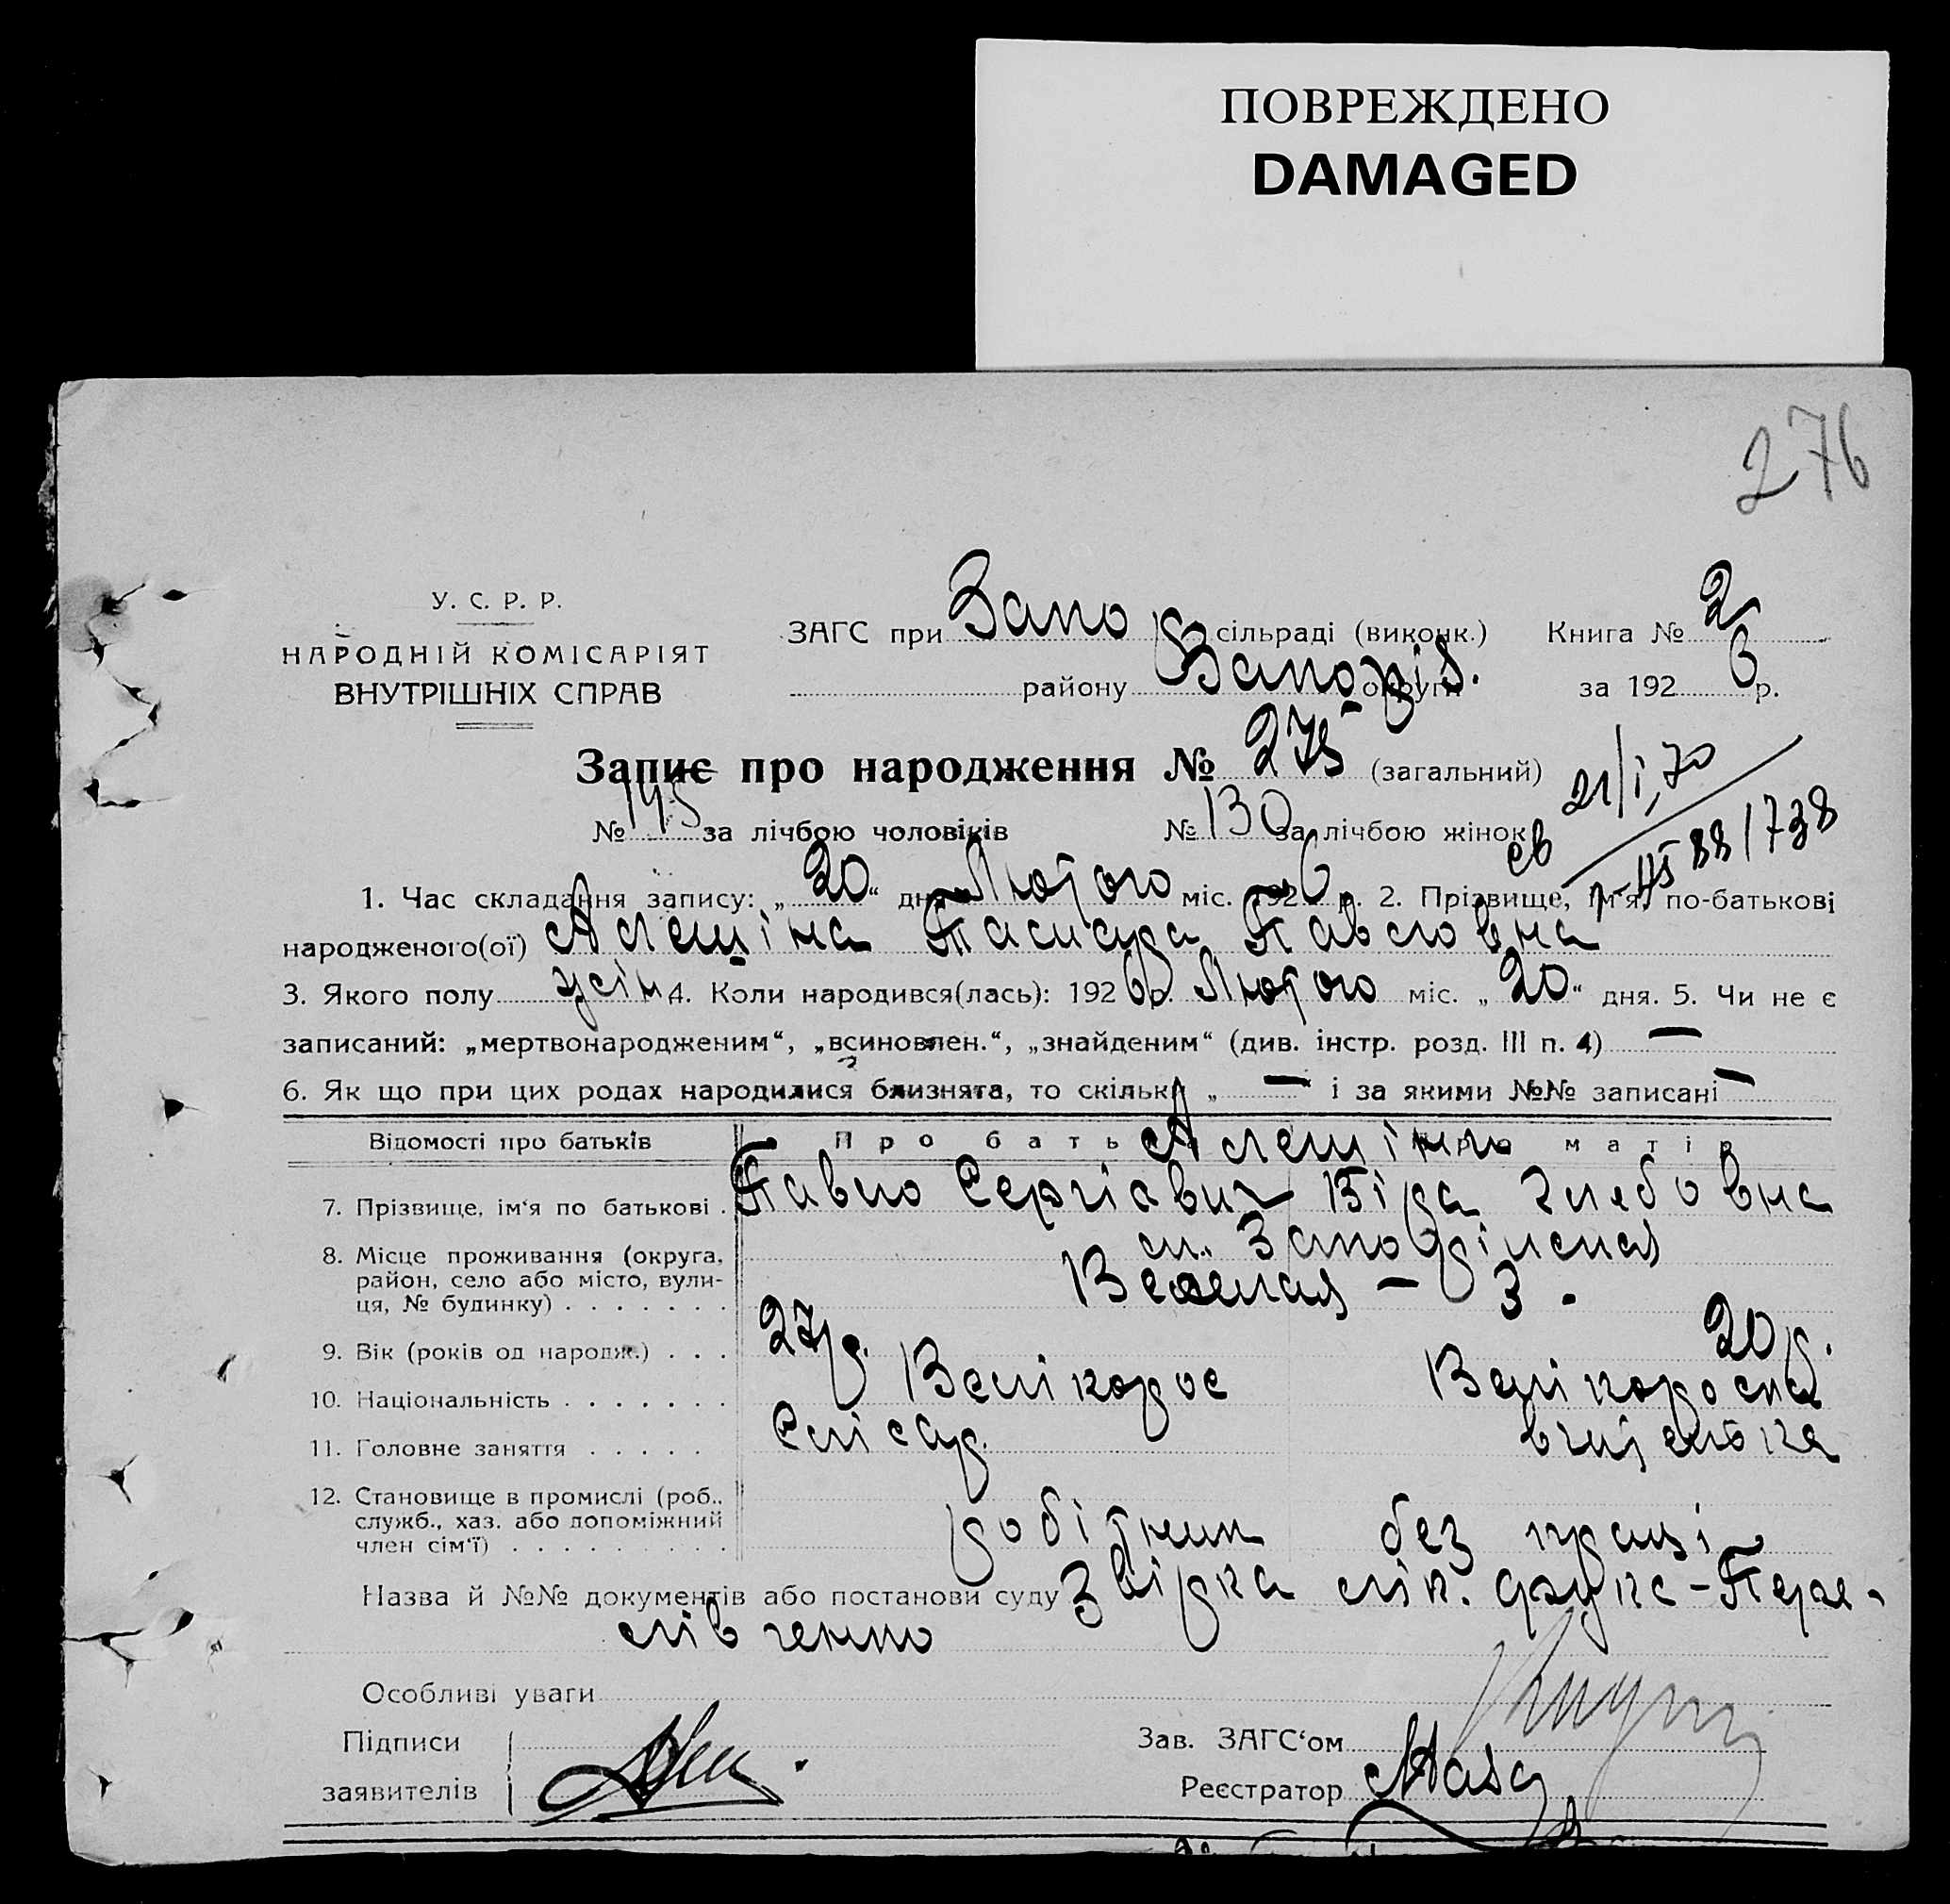 ПОВРЕЖДЕНО
DAMAGED
276
У. С. Р. Р.
НАРОДНІЙ КОМІСАРІЯТ
ВНУТРІШНІХ СПРАВ
ЗАГС при Запо сільраді (виконк.) Книга № 2
району округи за 1926 р.
Запис про народження № 275 (загальний)
№ 145 за лічбою чоловіків № 130 за лічбою жінок
21/I,70
1. Час складання запису: „20“ дня Лютого міс. 1926 р. 2. Прізвище, ім'я, по-батькові
народженого(ої) Алешіна Тамара Павловна
3. Якого полу жін 4. Коли народився(лась): 1926 р. Лютого міс. „20“ дня. 5. Чи не є
записаний: „мертвонародженим“, „всиновлен.“, „знайденим“ (див. інстр. розд. III п. 4) —
6. Як що при цих родах народилися близнята, то скільки „ — “ і за якими №№ записані —
Відомості про батьків Про батька Про матір
Алешіни
7. Прізвище, ім'я по батькові . Павло Сергієвич Віра Глебовна
8. Місце проживання (округа,
район, село або місто, вули-
ця, № будинку) . . . . . . . — 3.
9. Вік (років од народж.) . . . 27 р. 20 р.
10. Національність . . . . . . . Велікорос Велікороска
11. Головне заняття . . . . . Слісар. вчителька
12. Становище в промислі (роб.,
служб., хаз. або допоміжний
член сім'ї) . . . . . . . . . робітник без праці
Назва й №№ документів або постанови суду Звірка лік.
Особливі уваги
Підписи Зав. ЗАГС'ом
заявителів Реєстратор